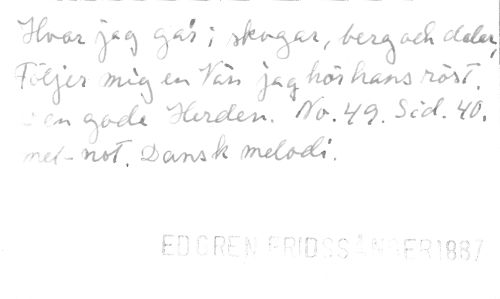 Hvar jag går i skogar, berg och dalar,
Följer mig en Vän jag hör hans röst.
en gode Herden. No. 49. Sid. 40.
met-not. Dansk melodi.
EDGREN FRIDSSÅNGER 1887